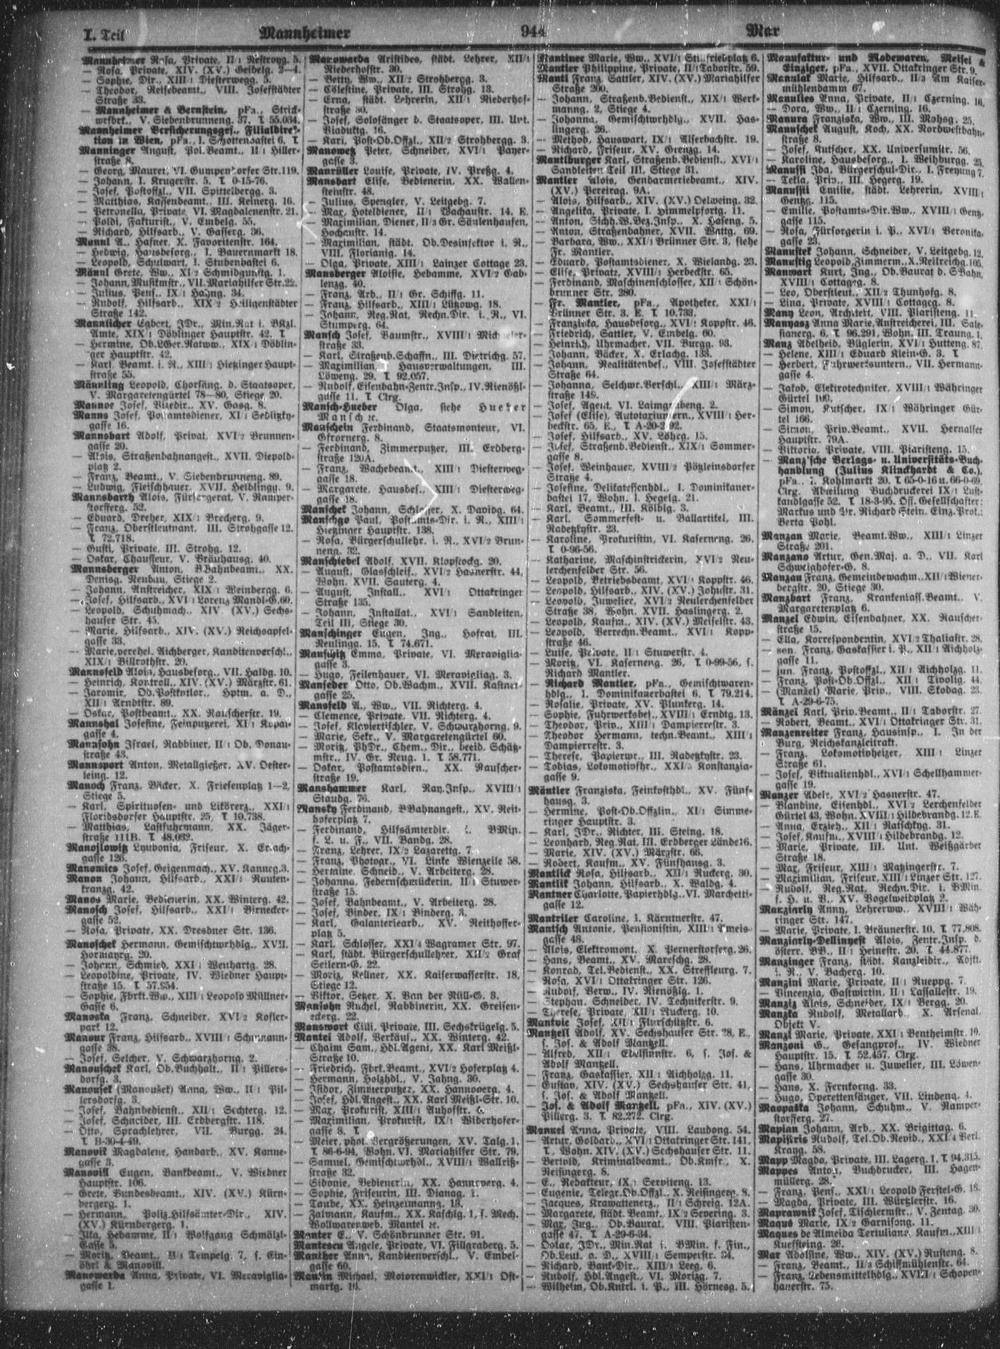 I. Teil Mannheimer 944 Mar
Mannheimer Rosa, Private, II/1 Nestroyg. 5.
— Rosa, Private, XIV. (XV.) Geibelg. 2—4.
— Sophie, Dir., XIII/1 Diesterwegg. 5.
— Theodor, Reisebeamt., VIII. Josefstädter
Straße 33.
Mannheimer & Bernstein, pFa., Strick-
Mannheimer Versicherungsges., Filialdirek-
tion in Wien, pFa., I. Schottenbastei 6. T
Manninger August, Pol.Beamt., II/1 Hiller-
straße 8.
— Georg, Maurer, VI. Gumpendorfer Str. 119.
— Johann, I. Krugerstr. 5. T 0-15-76.
— Josef, Postoffzl., VII. Spittelbergg. 3.
— Matthias, Kassenbeamt., III. Keinerg. 16.
— Petronella, Private, VI. Magdalenenstr. 21.
— Poldi, Falkurit, V. Embelg. 55.
— Richard, Hilfsarb., V. Gasserg. 36.
Mannl A., Hafner, X. Favoritenstr. 164.
— Hedwig, Hausbesorg., I. Bauernmarkt 18.
— Leopold, Schulwart, I. Stubenbastei 6.
Männl Grete, Ww., XI/2 Schmidgunstg. 1.
— Johann, Musiktnstr., VII. Mariahilfer Str. 22.
— Julius, Pens., IX/1 Hahng. 34.
— Rudolf, Hilfsarb., XIX/2 Heiligenstädter
Straße 142.
Mannlicher Egbert, JDr., Min.Rat i. BKzl.
Amte, XIX/1 Döblinger Hauptstr. 42. T
— Hermine, Ob.LGer.Ratww., XIX/1 Döblin-
ger Hauptstr. 42.
— Karl, Beamt. i. R., XIII/1 Hietzinger Haupt-
straße 55.
Männling Leopold, Chorsäng. d. Staatsoper,
V. Margaretengürtel 78—80, Stiege 20.
Mannoe Josef, Buchdr., XV. Goldg. 8.
Manns Josef, Postamtsdiener, XI/1 Sedlitzky-
gasse 16.
Mannsbart Adolf, Privat, XVI/2 Brunnen-
gasse 20.
— Alois, Straßenbahnangest., XVII. Diepold-
platz 2.
— Franz, Beamt., V. Siebenbrunneng. 89.
— Ludwig, Fleischhauer, XVII. Heiblingg. 9.
Mannsbarth Alois, Fürsorgerat, V. Ramper-
storfferg. 52.
— Eduard, Dreher, XIX/1 Brecherg. 9.
— Franz, Oberstleutnant, III. Strohgasse 12.
T 72.718.
— Gusti, Private, III. Strohg. 12.
— Oskar, Chauffeur, V. Bräuhausg. 40.
Mannsberger Anton, BBahnbeamt., XX.
Denisg. Neubau, Stiege 2.
— Johann, Anstreicher, XIX/1 Weinberg. 6.
— Josef, Hilfsarb., XVI/1 Lorenz Mandl-G. 60.
— Leopold, Schuhmach., XIV. (XV.) Sechs-
hauser Str. 45.
— Marie, Hilfsarb., XIV. (XV.) Reichsapfel-
gasse 33.
— Marie, verehel. Aichberger, Kanditenverschl.,
XIX/1 Billrothstr. 20.
Mannsfeld Alois, Hausbesorg., VII. Halbg. 10.
— Heinrich, Kontroll., XIV. (XV.) Märzstr. 61.
— Jaromir, Ob.Postkntlor., Hptm. a. D.,
XII/1 Arndtstr. 89.
— Oskar, Postbeamt., XX. Rauscherstr. 19.
Mannshal Josefine, Feinputzerei, XI/1 Kopal-
gasse 4.
Mannsohn Israel, Rabbiner, II/1 Ob. Donau-
straße 43.
Mannsport Anton, Metallgießer, XV. Oester-
leing. 12.
Manoch Franz, Bäcker, X. Friesenplatz 1—2,
Stiege 5.
— Karl, Spirituosen- und Likörerz., XXI/1
Floridsdorfer Hauptstr. 25. T 10.738.
— Matthias, Lastfuhrmann, XX. Jäger-
straße 111B. T 48.032.
Manojlowits Lyubonia, Friseur, X. Erlach-
gasse 126.
Manomics Josef, Geigenmach., XV. Kanneg. 3.
Manon Johann, Hilfsarb., XXI/1 Rauten-
kranzg. 42.
Manos Marie, Bedienerin, XX. Winterg. 42.
Manosch Josef, Hilfsarb., XXI/1 Birnecker-
gasse 52.
— Rosa, Private, XX. Dresdner Str. 136.
Manoschek Hermann, Gemischtwhdlg., XVII.
Hormayrg. 20.
— Johann, Schmied, XXI/1 Wenhartg. 28.
— Leopoldine, Private, IV. Wiedner Haupt-
straße 15. T 57.954.
— Sophie, Fbrkt.Ww., XIII/1 Leopold Müllner-
Gasse 6.
Manoska Franz, Schneider, XVI/2 Koller-
park 12.
Manour Franz, Hilfsarb., XVIII/1 Schumann-
gasse 38.
— Josef, Selcher, V. Schwarzhorng. 2.
Manouschek Karl, Ob.Buchhalt., II/1 Pillers-
dorfg. 3.
Manousek (Manoušek) Anna, Ww., II/1 Pil-
lersdorfg. 3.
— Josef, Bahnbedienst., XII/1 Sechterg. 12.
— Josef, Schneider, III. Erdbergstr. 118.
— Otto, Sprachlehrer, VII. Burgg. 24.
T B-30-4-49.
Manovik Magdalene, Handarb., XV. Kanne-
gasse 3.
Manovill Eugen, Bankbeamt., V. Wiedner
Hauptstr. 106.
— Grete, Bundesbeamt., XIV. (XV.) Kürn-
bergerg. 1.
— Hermann, Poliz.Hilfsämter-Dir., XIV.
(XV.) Kürnbergerg. 1.
— Ilka, Hebamme, II/1 Wolfgang Schmälzl-
Gasse 5.
— Moriz, Beamt., II/1 Tempelg. 7, s. Ein-
öhrl & Manovill.
Manowarda Anna, Private, VI. Meraviglia-
gasse 1.
Manowarda Aristides, städt. Lehrer, XII/1
Niederhofstr. 30.
— Betty, Ww., XII/2 Strohbergg. 3.
— Cölestine, Private, III. Strohg. 13.
— Erna, städt. Lehrerin, XII/1 Niederhof-
straße 30.
— Josef, Solosänger d. Staatsoper, III. Unt.
Viaduktg. 16.
— Karl, Post-Ob.Offzl., XII/2 Strohbergg. 3.
Manowetz Peter, Schneider, XVI/1 Payer-
gasse 3.
Manrüller Louise, Private, IV. Preßg. 4.
Mansbart Elise, Bedienerin, XX. Wallen-
steinstr. 48.
— Julius, Spengler, V. Leitgebg. 7.
— Max, Hoteldiener, II/1 Wachaustr. 14. E.
— Maximilian, Diener, II/1 Gr. Säulenhaufen,
Hochaustr. 14.
— Maximilian, städt. Ob.Desinfektor i. R.,
VIII. Florianig. 14.
— Olga, Private, XIII/1 Lainzer Cottage 23.
Mansberger Aloisie, Hebamme, XVI/2 Gab-
lenzg. 40.
— Franz, Arb., II/1 Gr. Schiffg. 11.
— Franz, Hilfsarb., XIII/1 Lützowg. 18.
— Johann, Reg.Rat, Rechn.Dir. i. R., VI.
Stumperg. 64.
Mansch Josef, Baumstr., XVIII/1
straße 33.
— Karl, Straßenb.Schaffn., III. Dietrichg. 57.
— Maximilian, Hausverwaltungen, III.
Löweng. 29. T 92.057.
— Rudolf, Eisenbahn-Zentr.Insp., IV. Rienößl-
gasse 11. T Clrg.
Mansch-Hueber Olga, siehe Hueber
Manschein Ferdinand, Staatsmonteur, VI.
Gfrornerg. 8.
— Ferdinand, Zimmerputzer, III. Erdberg-
straße 120A.
— Franz, Wachebeamt., XIII/1 Diesterweg-
gasse 18.
— Margarete, Hausbes., XIII/1 Diesterweg-
gasse 18.
Manschek Johann, Schlosser, X. Davidg. 64.
Manschgo Paul, Postamts-Dir. i. R., XIII/1
Hietzinger Hauptstr. 138.
— Rosa, Bürgerschullehr. i. R., XVI/2 Brun-
neng. 32.
Manschiebel Adolf, XVII. Klopstockg. 20.
— August, Glasschleif., XVI/2 Hasnerstr. 44,
Wohn. XVII. Sauterg. 4.
— August, Install., XVI/1 Ottakringer
Straße 135.
— Johann, Installat., XVI/1 Sandleiten,
Teil III, Stiege 30.
Manschinger Eugen, Ing., Hofrat, III.
Neulingg. 15. T 74.671.
Mansütz Emma, Private, VI. Meraviglia-
gasse 3.
— Hugo, Feilenhauer, VI. Meravigliag. 3.
Manseder Otto, Ob.Wachm., XVII. Kastner-
gasse 25.
Mansfeld A., Ww., VII. Richterg. 4.
— Clemence, Private, VII. Richterg. 4.
— Josef, Klavierlehr., V. Schwarzhorng. 9.
— Marie, Sekr., V. Margaretengürtel 60.
— Moritz, PhDr., Chem., Dir., beeid. Schätz-
mstr., IV. Gr. Neug. 1. T 58.771.
— Oskar, Postamtsdien., XX. Rauscher-
straße 19.
Manshammer Karl, Ray.Insp., XVIII/1
Staudg. 76.
Mansky Ferdinand, BBahnangest., XV. Reit-
hoferplatz 7.
— Ferdinand, Hilfsämterdir. i. BMin.
f. L. u. F., VII. Bandg. 28.
— Franz, Lehrer, IX/2 Lazarettg. 7.
— Franz, Photogr., VI. Linke Wienzeile 58.
— Hermine, Schneid., V. Arbeiterg. 28.
— Johanna, Federnschmückerin, II/1 Stuwer-
straße 15.
— Josef, Bahnbeamt., V. Arbeiterg. 28.
— Josef, Binder, IX/1 Binderg. 3.
— Karl, Galanteriearb., XV. Reithoffer-
platz 5.
— Karl, Schlosser, XXI/1 Wagramer Str. 97.
— Karl, städt. Bürgerschullehrer, XII/2 Graf
Seilern-G. 22.
— Moriz, Kellner, XX. Kaiserwasserstr. 18,
Stiege 12.
— Viktor, Setzer, X. Van der Nüll-G. 3.
Mansohn Ruchel, Rabbinerin, XX. Greisen-
eckerg. 22.
Manswort Lilli, Private, III. Sechskrügelg. 5.
Mantel Adolf, Verkäuf., XX. Winterg. 42.
— Chaim Sam., Hdl.Agent, XX. Karl Meißl-
Straße 10.
— Friedrich, Fbrt.Beamt., XVI/2 Hoferplatz 4.
— Hermann, Holzhdl., V. Jahng. 30.
— Isidor, Zimmerputzer, XX. Hannoverg. 4.
— Josef, Hdl.Angest., XX. Karl Meißl-Str. 10.
— Max, Prokurist, XIII/1 Auhofstr. 6.
— Maximilian, Prokurist, IX/1 Wiberhofer-
gasse 8. T
— Meier, phot. Vergrößerungen, XV. Talg. 1.
T 86-6-94, Wohn. VI. Mariahilfer Str. 79.
— Samuel, Gemischtwhdl., XVIII/1 Wallriß-
straße 32.
— Sidonie, Bedienerin, XX. Hannoverg. 4.
— Sophie, Friseurin, III. Dianag. 1.
— Taube, XX. Heinzelmanng. 13.
— Zalmann, Kaufm., XX. Raschlg. 1, s. Mech.
Wollwarenweb. Mantel &c.
Manter E., V. Schönbrunner Str. 91.
Manteseu Angele, Private, VI. Fillgraderg. 5.
Manther Anna, Kanditenverschl., V. Embel-
gasse 60.
Manthin Michael, Motorenwickler, XXI/1 Ost-
markg. 16.
Mantines Betti, Ww., XVI/1 Stillfriedplatz 6.
Mantler Philippine, Private, II/1 Taborstr. 59.
Mantl Franz, Sattler, XIV. (XV.) Mariahilfer
Straße 200.
— Johann, Straßenb.Bedienst., XIX/1 Werk-
manng. 2, Stiege 4.
— Johanna, Gemischtwhdlg., XVII. Has-
lingerg. 26.
— Method, Hauswart, IX/1 Alserbachstr. 19.
— Richard, Friseur, XV. Grenzg. 14.
Mantlburger Karl, Straßenb.Bedienst., XVI/1
Sandleiten, Teil III, Stiege 31.
Mantler Alois, Gendarmeriebeamt., XIV.
(XV.) Pereirag. 9A.
— Alois, Hilfsarb., XIV. (XV.) Oelweing. 32.
— Angelika, Private, I. Himmelpfortg. 11.
— Anton, Sich.W.Bez.Insp., X. Hafeng. 5.
— Anton, Straßenbahner, XVII. Wattg. 69.
— Barbara, Ww., XXI/1 Brünner Str. 3, siehe
Fr. Mantler.
— Eduard, Postamtsdiener, X. Wielandg. 23.
— Elise, Private, XVIII/1 Herbeckstr. 65.
— Ferdinand, Maschinenschlosser, XII/1 Schön-
brunner Str. 280.
— Fr. Mantler, pFa., Apotheker, XXI/1
Brünner Str. 3. E. T 10.733.
— Franziska, Hausbesorg., XVI/1 Koppstr. 46.
— Friedrich, Sattler, V. Embelg. 60.
— Heinrich, Uhrmacher, VII. Burgg. 93.
— Johann, Bäcker, X. Erlachg. 133.
— Johann, Fakultätenbel., VIII. Josefstädter
Straße 64.
— Johanna, Selchwr.Verschl., XIII/1 März-
straße 149.
— Josef, Agent, VI. Laimgrubeng. 2.
— Josef (Elise), Autotaxiuntern., XVIII/1 Her-
beckstr. 65. E., T A-20-2-92.
— Josef, Hilfsarb., XV. Löhrg. 15.
— Josef, Straßenb.Bedienst., XIX/1 Sommer-
gasse 8.
— Josef, Weinhauer, XVIII/2 Pötzleinsdorfer
Straße 4.
— Josefine, Delikatessenhdl., I. Dominikaner-
bastei 17, Wohn. I. Hegelg. 21.
— Karl, Beamt., III. Kölblg. 3.
— Karl, Sommerfest- u. Ballartikel, III.
Radetzkystr. 23.
— Karoline, Prokuristin, VI. Kaserneng. 26.
T 0-96-56.
— Katharine, Maschinstrickerin, XVI/2 Neu-
lerchenfelder Str. 56.
— Leopold, Betriebsbeamt., XVI/1 Koppstr. 46.
— Leopold, Hilfsarb., XIV. (XV.) Johnstr. 31.
— Leopold, Juwelier, XVI/2 Neulerchenfelder
Straße 38, Wohn. XVII. Haslingerg. 2.
— Leopold, Kaufm., XIV. (XV.) Meiselstr. 43.
— Leopold, Verrechn.Beamt., XVI/1 Kopp-
straße 46.
— Luise, Private, II/1 Stuwerstr. 4.
— Moritz, VI. Kaserneng. 26. T 0-99-56, s.
Richard Mantler.
— Richard Mantler, pFa., Gemischtwaren-
hdlg., I. Dominikanerbastei 6. T 79.214.
— Rosalie, Private, XV. Plunkerg. 14.
— Sophie, Fuhrwerksbes., XVIII/1 Erndtg. 13.
— Theodor, Priv., XIII/1 Dampierrestr. 3.
— Theodor Hermann, techn.Beamt., XIII/1
Dampierrestr. 3.
— Therese, Papierwr., III. Radetzkystr. 23.
— Tobias, Lokomotivfhr., XXI/5 Konstanzia-
gasse 9.
Mäntler Franziska, Feinkosthdl., XV. Fünf-
hausg. 3.
— Hermine, Post-Ob.Offzlin., XI/1 Simme-
ringer Hauptstr. 3.
— Karl, JDr., Richter, III. Steing. 18.
— Leonhard, Reg.Rat, III. Erdberger Lände 16.
— Marie, XIV. (XV.) Märzstr. 66.
— Robert, Kaufm., XV. Fünfhausg. 3.
Mantlick Rosa, Hilfsarb., XII/1 Ruckerg. 30.
Mantlik Johann, Hilfsarb., X. Waldg. 4.
Mantner Charlotte, Papierhdlg., VI. Marchetti-
gasse 12.
Mantriler Caroline, I. Kärntnerstr. 47.
Mantsch Antonie, Pensionistin, XIII/1 Ameis-
gasse 48.
— Alois, Elektromont., X. Pernerstorferg. 26.
— Hans, Beamt., XV. Mareschg. 28.
— Konrad, Tel.Bedienst., XX. Streffleurg. 7.
— Rosa, XVI/1 Ottakringer Str. 126.
— Rudolf, Berw., IV. Rienößlg. 1.
— Stephan, Schneider, IV. Technikerstr. 9.
— Therese, Private, XII/1 Ruckerg. 10.
Mantvic Josef, XII/1 Flurschützstr. 6.
Mantzell Adolf, XV. Sechshauser Str. 28, E.,
s. Jof. & Adolf Mantzell.
— Alfred, XII/1 Edelsinnstr. 6, s. Jof. &
Adolf Mantzell.
— Franz, Gastwirt, XII/1 Aichholzg. 11.
— Gustav, XIV. (XV.) Sechshauser Str. 41,
s. Jof. & Adolf Mantzell.
— Jof. & Adolf Mantzell, pFa., XIV. (XV.)
Pillerg. 3. T 82.272. Clrg.
Manuel Anna, Private, VIII. Laudong. 54.
— Artur, Goldarb., XVI/1 Ottakringer Str. 141.
T, Wohn. XIV. (XV.) Sechshauser Str. 11.
— Bertold, Kriminalbeamt., Ob.Kmsr., X.
Reisingerg. 8.
— E., Redakteur, IX/1 Serviteng. 13.
— Eugenie, Telegr.Ob.Offzl., X. Reisingerg. 8.
— Jacques, Krawattenerz., II/1 Schreig. 12A.
— Margarete, städt. Beamt., IX/2 Severing. 3.
— Max, Ing., Ob.Baurat, VIII. Piaristen-
gasse 47. T A-29-6-34.
— Oskar, JDr., Min.Rat i. BMin. f. Fin.,
Ob.Leut. a. D., XVIII/1 Semperstr. 34.
— Richard, Bank-Dir., XIII/1 Leeg. 6.
— Rudolf, Hdl.Angest., VI. Morizg. 7.
— Wilhelm, Ob.Kntl. i. P., III. Hörnesg. 5.
Manufaktur- und Modewaren, Meisel &
Einziger, pFa., XVII. Ottakringer Str. 9.
Manulat Marie, Hilfsarb., II/2 Am Kaiser-
mühlendamm 67.
Manulies Anna, Private, II/1 Czerning. 16.
— Dora, Ww., II/1 Czerning. 16.
Manura Franziska, Ww., III. Mohsg. 25.
Manuschek August, Koch, XX. Nordwestbahn-
straße 8.
— Josef, Kutscher, XX. Universumstr. 56.
— Karoline, Hausbesorg., I. Weihburgg. 25.
Manussi Ida, Bürgerschul-Dir., I. Freyung 7.
— Tella, Priv., III. Hegerg. 19.
Manussii Emilie, städt. Lehrerin, XVIII/1
Gentzg. 115.
— Emilie, Postamts-Dir.Ww., XVIII/1 Gentz-
gasse 115.
— Rosa, Fürsorgerin i. P., XVI/1 Veronika-
gasse 23.
Manustek Johann, Schneider, V. Leitgebg. 12.
Manustig Leopold, Zimmern., X. Rokerichg. 16.
Manwart Kurt, Ing., Ob.Baurat d. SBahn,
XVIII/1 Cottageg. 8.
— Leo, Oberstleut., XII/2 Thunhofg. 8.
— Lina, Private, XVIII/1 Cottageg. 8.
Many Leon, Architekt, VIII. Piaristeng. 11.
Manyasz Anna Marie, Anstreicherei, III. Sale-
sianerg. 6. T 96.291, Wohn. III. Traung. 1.
Manz Adelheid, Büglerin, XVI/1 Hutteng. 87.
— Helene, XIII/1 Eduard Klein-G. 3. T
— Herbert, Fuhrwerksuntern., VII. Hermann-
gasse 4.
— Jakob, Elektrotechniker, XVIII/1 Währinger
Gürtel 100.
— Simon, Kutscher, IX/1 Währinger Gür-
tel 166.
— Simon, Priv.Beamt., XVII. Hernalser
Hauptstr. 79A.
— Viktoria, Private, VIII. Piaristeng. 15.
Manz'sche Verlags- u. Universitäts-Buch-
handlung (Julius Klinckhardt & Co.),
pFa., I. Kohlmarkt 20. T 65-0-16 u. 66-0-69.
Clrg. Abteilung Buchdruckerei IX/1 Lust-
kandlgasse 52. T 18-3-95. Off. Gesellschafter:
Markus und Dr. Richard Stein, Einz.Prok.:
Berta Pohl.
Manzan Marie, Beamt.Ww., XIII/1 Linzer
Straße 201.
Manzano Artur, Gen.Maj. a. D., VII. Karl
Schweighofer-G. 8.
Manzan Franz, Gemeindewachm., XII/1 Wiener-
bergstr. 20, Stiege 30.
Manzbart Franz, Krankenkass.Beamt., V.
Margaretenplatz 6.
Manzel Edwin, Eisenbahner, XX. Rauscher-
straße 15.
— Ella, Korrespondentin, XVI/2 Thaliastr. 28.
— sen. Franz, Gaskassier i. P., XII/1 Aichholz-
gasse 11.
— jun. Franz, Postoffzl., XII/1 Aichholzg. 11.
— Franz, Post-Ob.Offzl., XII/1 Tivolig. 44.
— (Manzel) Marie, Priv., VIII. Skodag. 23.
T A-29-6-75.
Mänzel Karl, Priv.Beamt., II/1 Taborstr. 27.
— Robert, Beamt., XVI/1 Ottakringer Str. 31.
Manzenreiter Franz, Hausinsp., I. In der
Burg, Reichskanzleitrakt.
— Franz, Lokomotivheizer, XIII/1 Linzer
Straße 61.
— Josef, Viktualienhdl., XII/1 Schellhammer-
gasse 19.
Manzer Adele, XVI/2 Hasnerstr. 47.
— Blandine, Eisenhdl., XVI/2 Lerchenfelder
Gürtel 43, Wohn. XVIII/1 Hildebrandg. 12. E.
— Anna, Erzieh., XII/1 Ratschkyg. 31.
— Josef, Kaufm., XVIII/1 Hildebrandg. 12.
— Marie, Private, III. Unt. Weißgärber
Straße 18.
— Max, Friseur, XIII/1 Matzingerstr. 7.
— Maximilian, Friseur, XIII/1 Linzer Str. 127.
— Rudolf, Reg.Rat, Rechn.Dir. i. BMin.
f. H. u. V., XV. Vogelweidplatz 2.
Manziarly Anny, Lehrersww., XVIII/1 Wäh-
ringer Str. 147.
— Marie, Private, I. Bräunerstr. 10. T 77.808.
Manziarly-Dellinyest Alois, Zentr.Insp. d.
österr. BB., II/1 Heinestr. 20. T 44.877.
Manzinger Franz, städt. Kanzleidir.
i. R., V. Bacherg. 10.
Manzini Marie, Private, II/1 Rueppg. 7.
— Vincenzia, Gastwirtin, II/1 Lassallestr. 19.
Manzig Alois, Schneider, IX/1 Bergg. 20.
Manzka Rudolf, Metallarb., X. Arsenal,
Objekt V.
Manzl Marie, Private, XXI/1 Bentheimstr. 10.
Manzoni G., Gesangprof., IV. Wiedner
Hauptstr. 15. T 52.457. Clrg.
— Hans, Uhrmacher u. Juwelier, III. Löwen-
gasse 30.
— Hans, X. Fernkorng. 33.
— Hugo, Operettensänger, VII. Lindeng. 4.
Maopaska Johann, Schuhm., V. Ramper-
storfferg. 27.
Mapian Johann, Arb., XX. Brigittag. 6.
Mapistris Rudolf, Tel.Ob.Revid., XXI/4 Berl.
Krausg. 58.
Mapp Magda, Private, III. Lagerg. 1. T 94.315.
Mappes Anton, Buchdrucker, III. Hagen-
müllerg. 28.
— Franz, Pens., XXI/1 Leopold Ferstel-G. 18.
— Magda, Private, III. Würtzlerstr. 16.
Maprawnit Josef, Tischlermstr., V. Zentag. 30.
Maqus Marie, IX/2 Garnisong. 11.
Maques de Almeida Tertuliano, Kaufm., XIII/1
Kupelsteing. 26.
Mar Adolfine, Ww., XIV. (XV.) Rusteng. 8.
— Franz, Beamt., II/2 Schiffmühlenstr. 64.
— Franz, Lebensmittelhdlg., XVIII/1 Schopen-
hauerstr. 75.